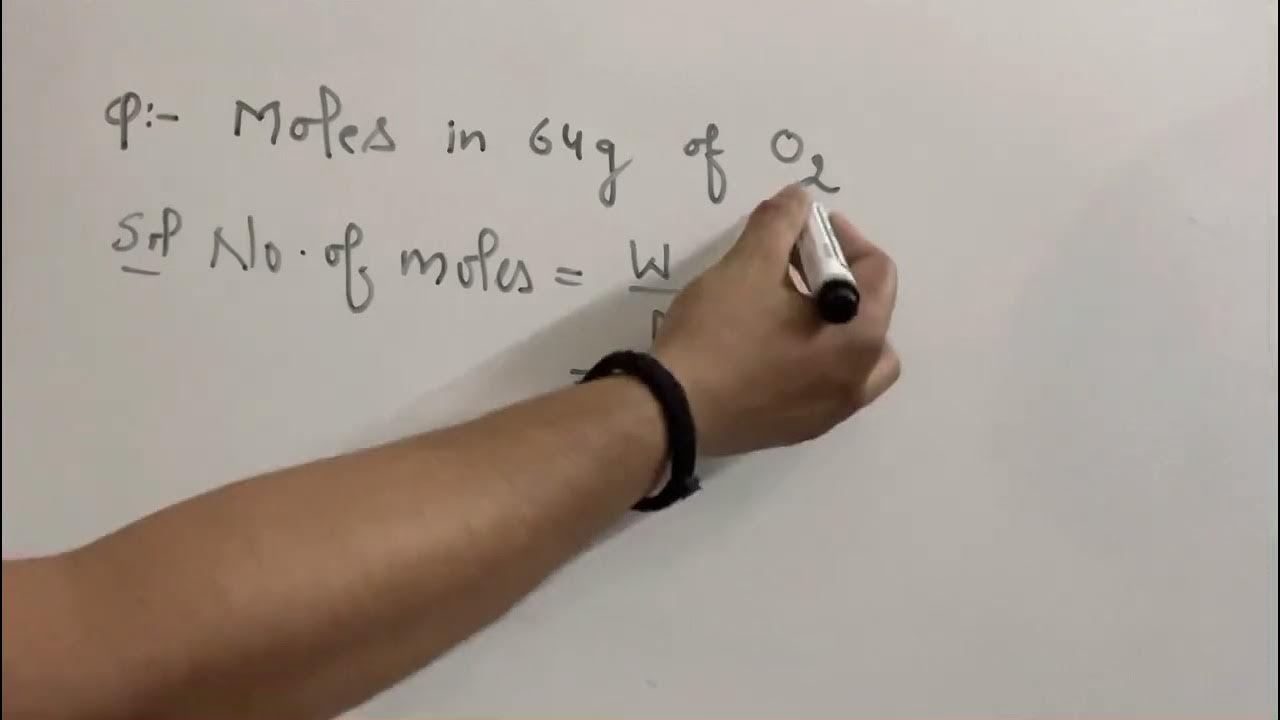 Q:- Moles in 64g of O2
Sol No. of moles = W
=